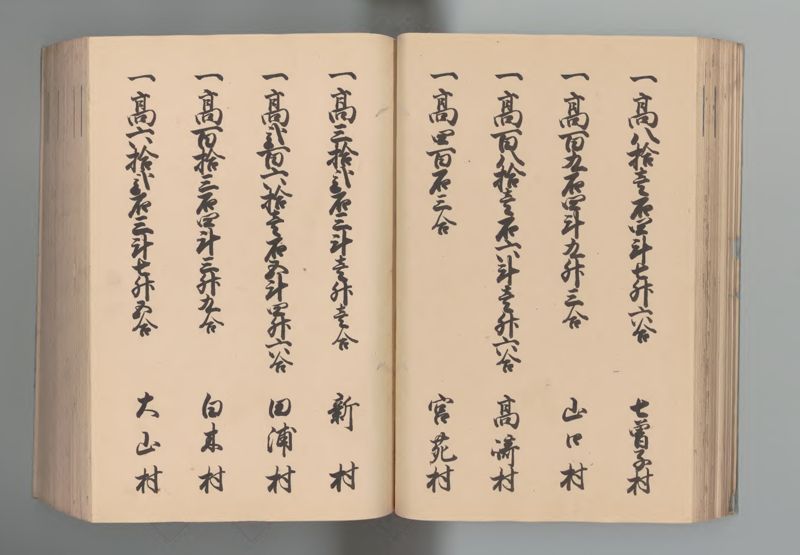 一高八拾壱石四斗七升六合 七曽子村
一高百九石四斗九升三合 山口村
一高百八拾壱石六斗壱升六合 高崎村
一高四百石三合 宮苑村
一高三拾弐石三斗壱升壱合 新村
一高弐百六拾壱石五斗四升六合 田浦村
一高百拾三石四斗三升九合 白木村
一高六拾弐石三斗七升五合 大山村